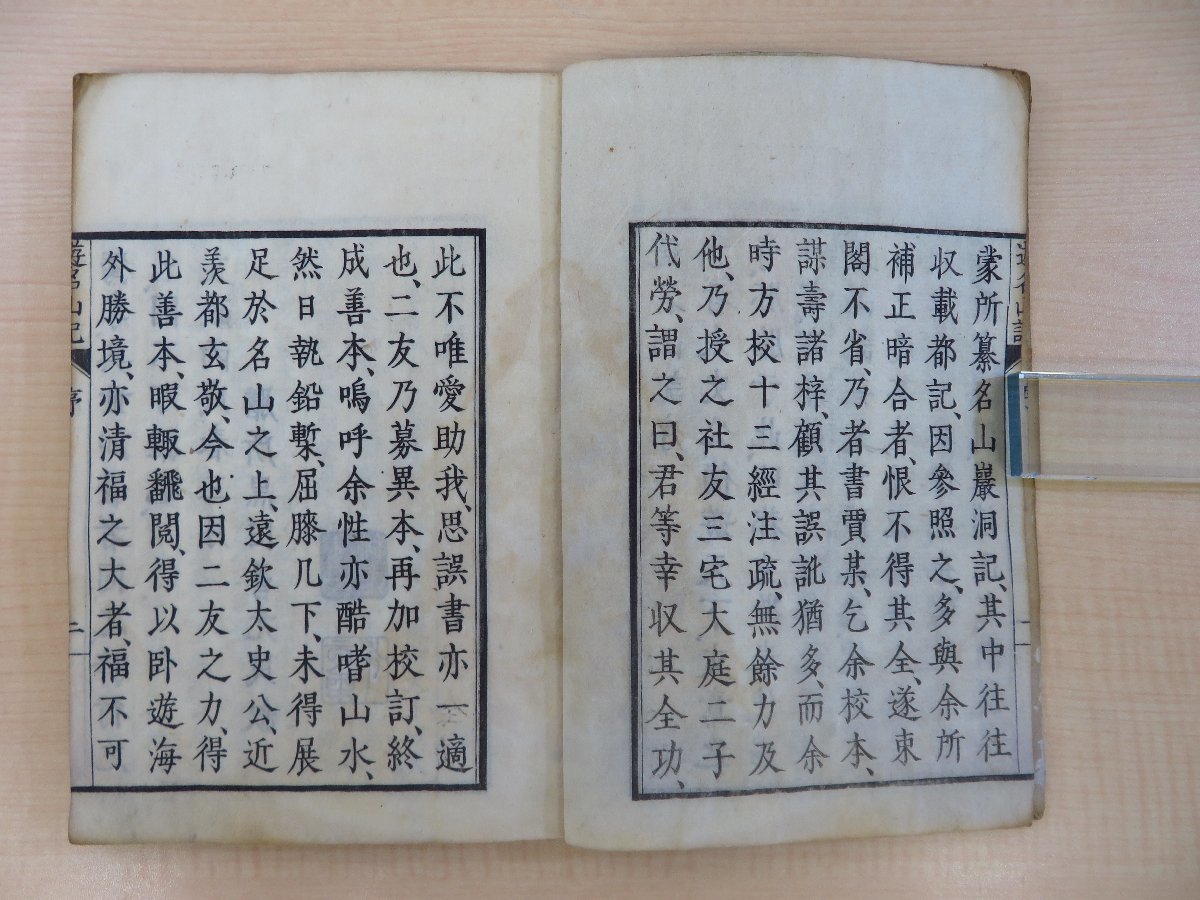 蒙所纂名山巖洞記、其中往往
収載都記、因參照之、多與余所
補正暗合者、恨不得其全、遂束
閣不省、乃者書賈某、乞余校本、
謀壽諸梓、顧其誤訛猶多、而余
時方校十三經注疏、無餘力及
他、乃授之社友三宅大庭二子
代勞、謂之曰、君等幸収其全功、
此不唯愛助我、思誤書亦一適
也、二友乃募異本、再加校訂、終
成善本、嗚呼余性亦酷嗜山水、
然日執鉛槧、屈膝几下、未得展
足於名山之上、遠欽太史公、近
羨都玄敬、今也因二友之力、得
此善本、暇輙飜閲、得以卧遊海
外勝境、亦清福之大者、福不可
遊名山記 序 二